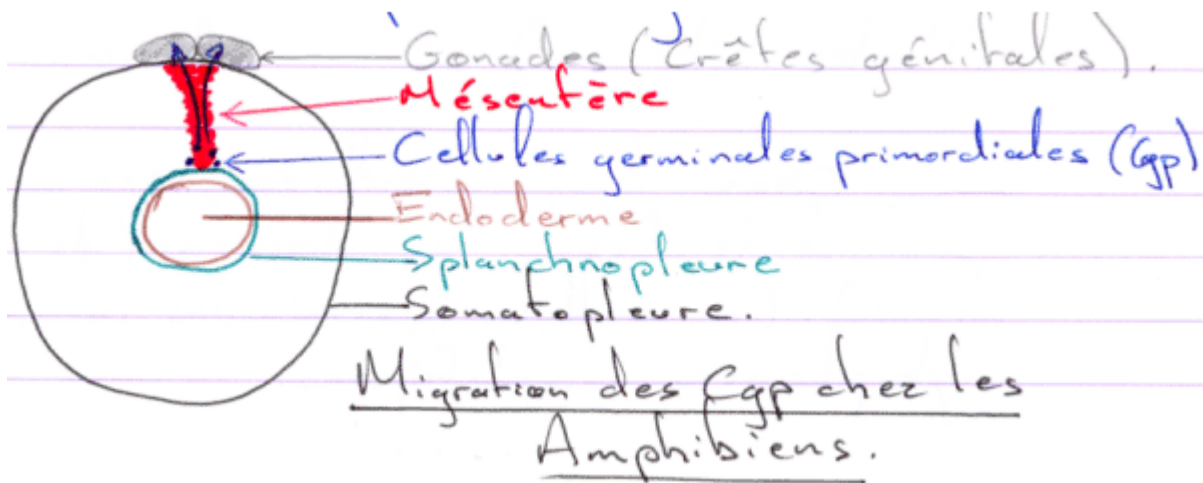 Gonades (Crêtes génitales).
Mésentère
Cellules germinales primordiales (Cgp)
Endoderme
Splanchnopleure
Somatopleure.
Migration des Cgp chez les
Amphibiens.